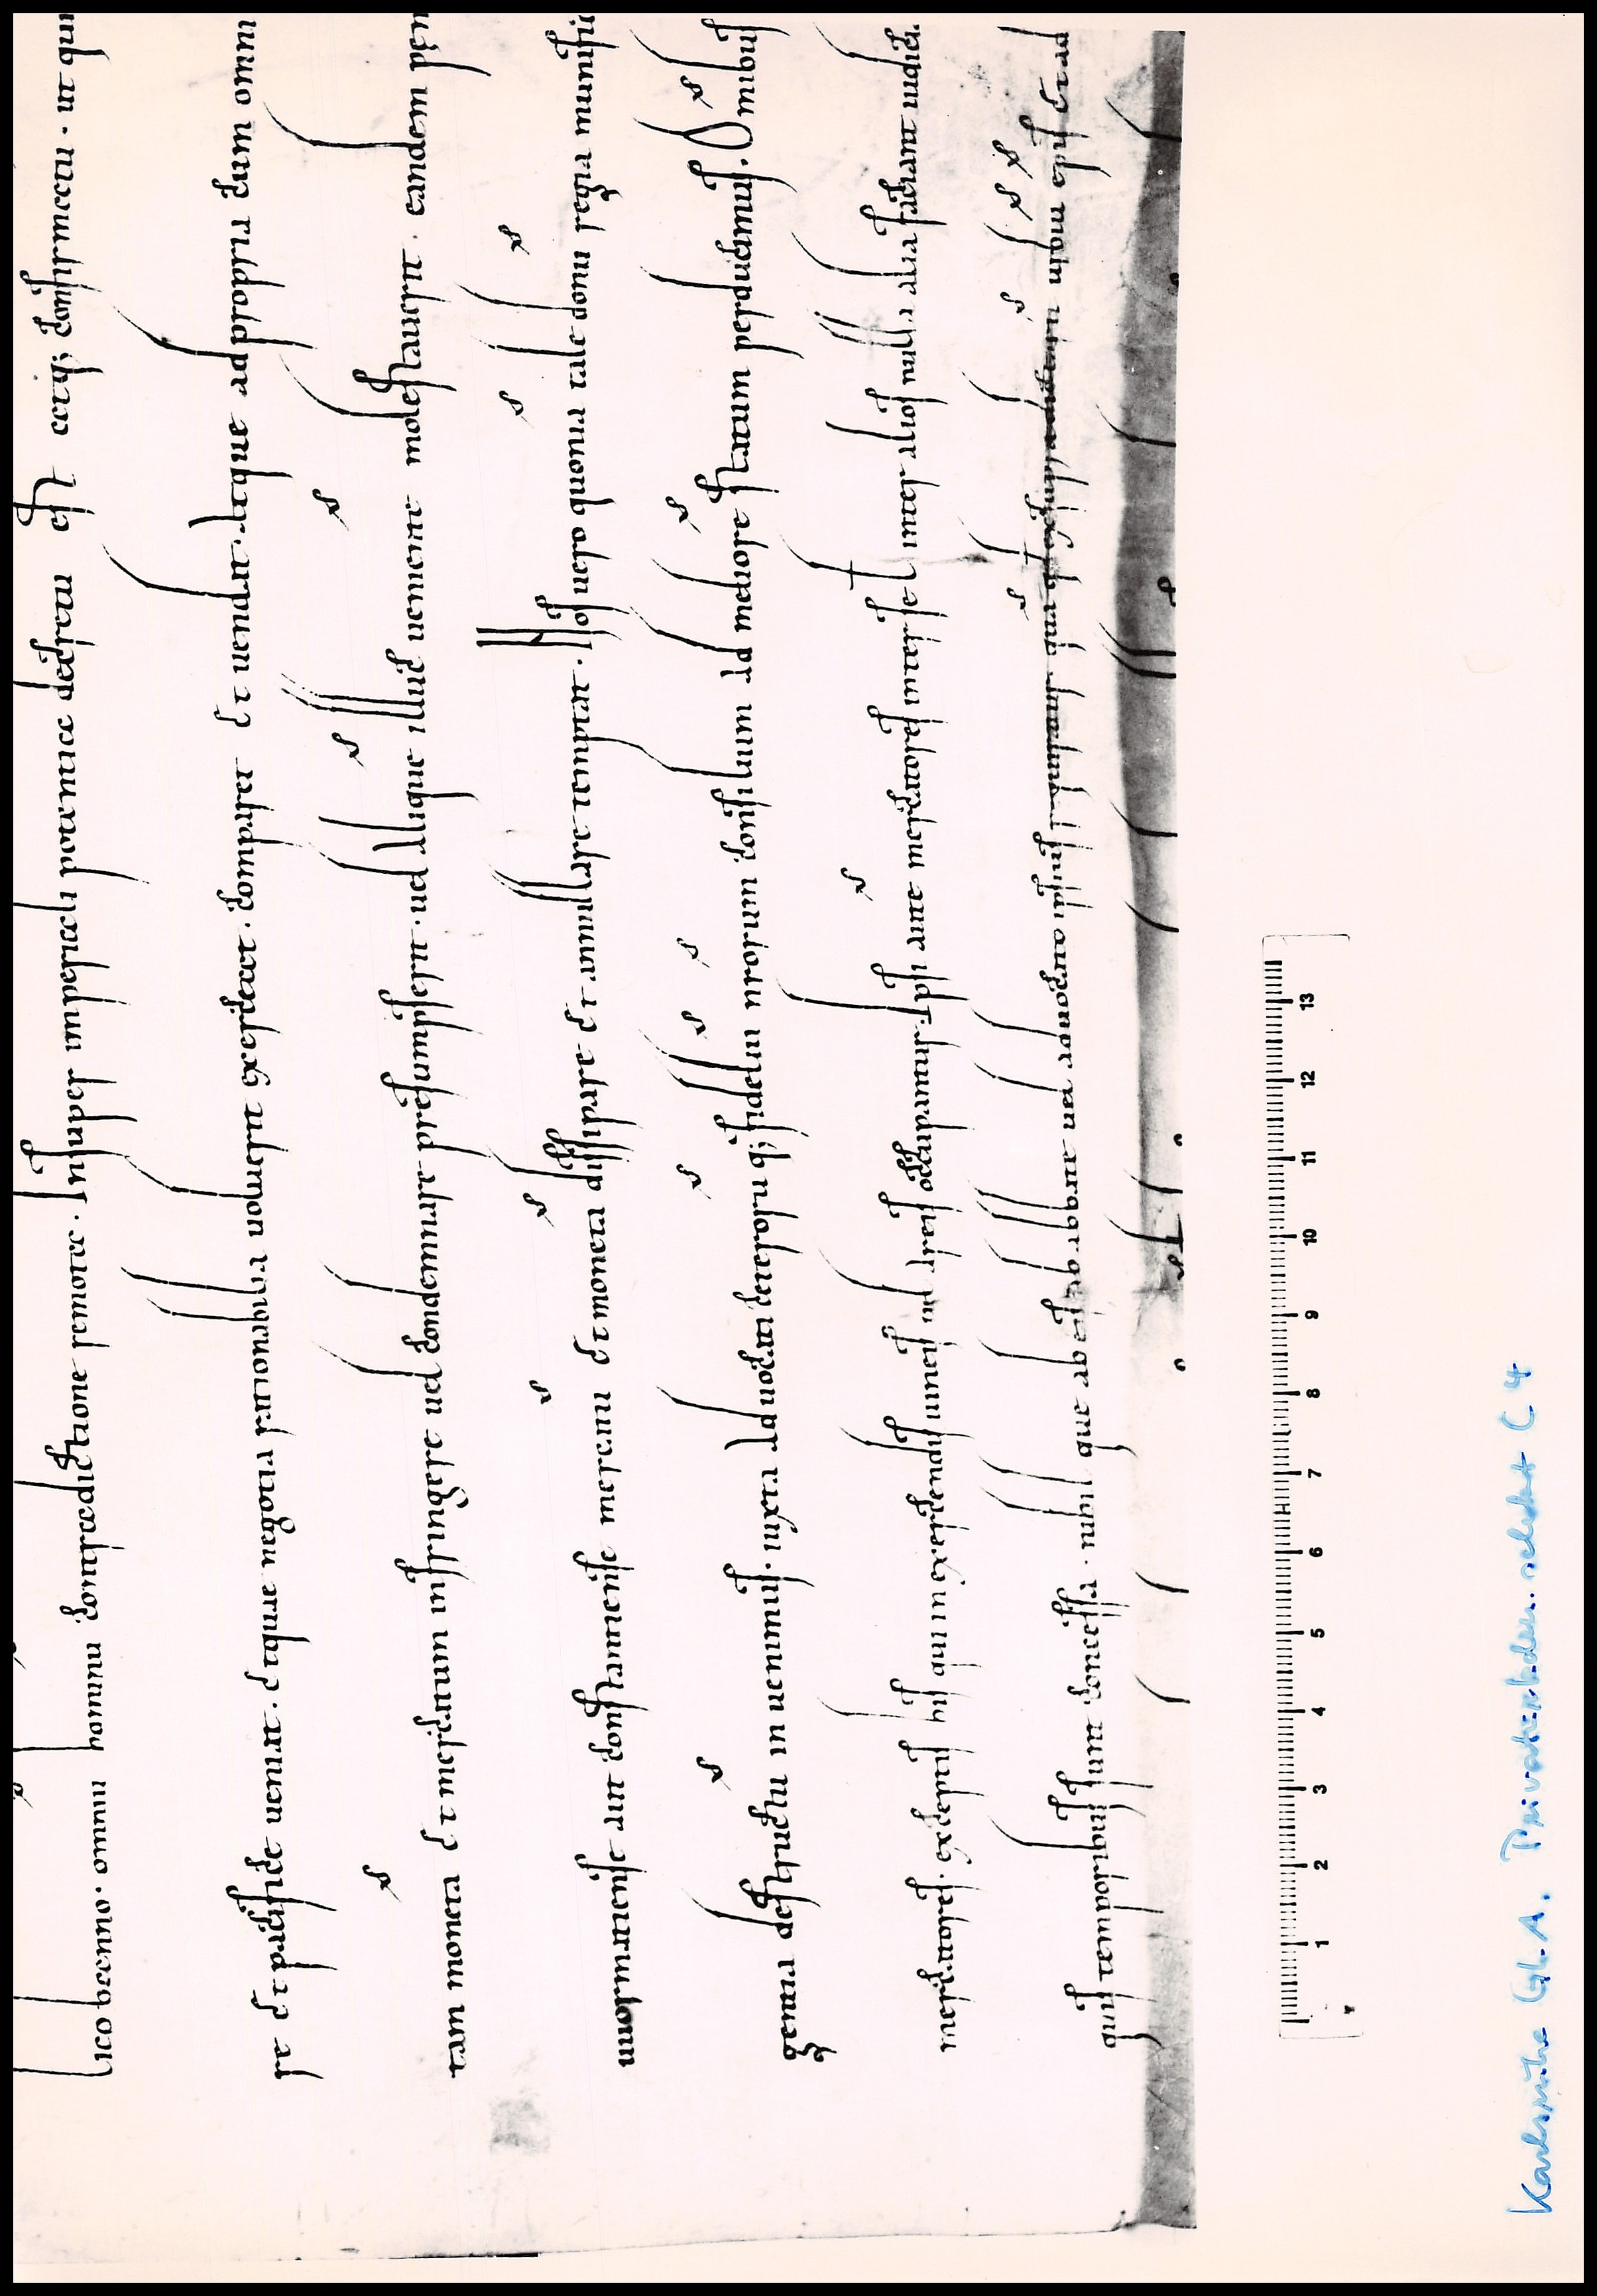 lico banno · omniū hominū contradictione remota · Insuper imperiali potentia decretū est atq; confirmatū · ut qui
re et pacifice ueniat · et quae negotia rationabilia uoluerit exerceat · comparet et uendat · atque ad propria cum omni
tam moneta et mercatum infringere uel condemnare presumpserit · uel aliquis illuc ueniente molestauerit · eandem pen
uuormatiense aut constantiense mercatū et moneta dissipare et annullare temptat · Hos uero quoniā tale donū regia munific
gentiā destructū in uenimus · iuxta aduocati ceterorū q; fideliū nrorum consilium ad meliore statum perducimus · Omnibus
mercatores · exceptis his qui in exercendis uineis uel areis occupantur · Ipsi aute mercatores inter se uel inter alios nulla alia faciant iudici
quis temporibus sunt concessa · nihil que ab eis abbate uel aduocato ipsius
1 2 3 4 5 6 7 8 9 10 11 12 13
Karlsruhe GLA. Privaturkden. selekt C 4